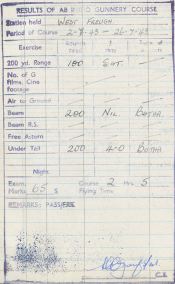 RESULTS OF AB GUNNERY COURSE
held WEST FREUGH.
Period of Course 2-7-43 - 26-7-43
Exercise
200 yd. Range 180 SAT
No. of G
Films, Cine
Footage
Air to Ground
Beam 200 NIL BOTHA
Beam R.S.
Free Astern
Under Tail 200 4-0 BOTHA
Night
Exam. Marks 65 % Course Flying Time 2 Hrs 5
REMARKS: PASS/FAIL